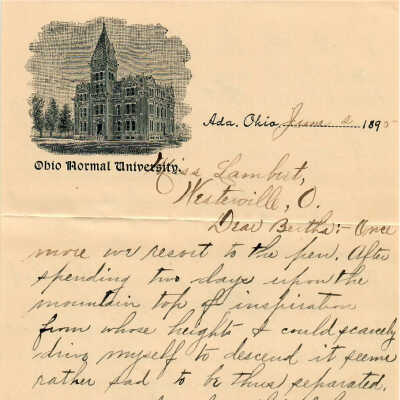 Ada, Ohio June 2 1895
Ohio Normal University.
Miss Lambert,
Westerville, O.
Dear Bertha:- Once
more we resort to the pen. After
spending two days upon the
mountain top of inspiration
from whose heights I could scarcely
drive myself to descend it seems
rather sad to be thus separated.